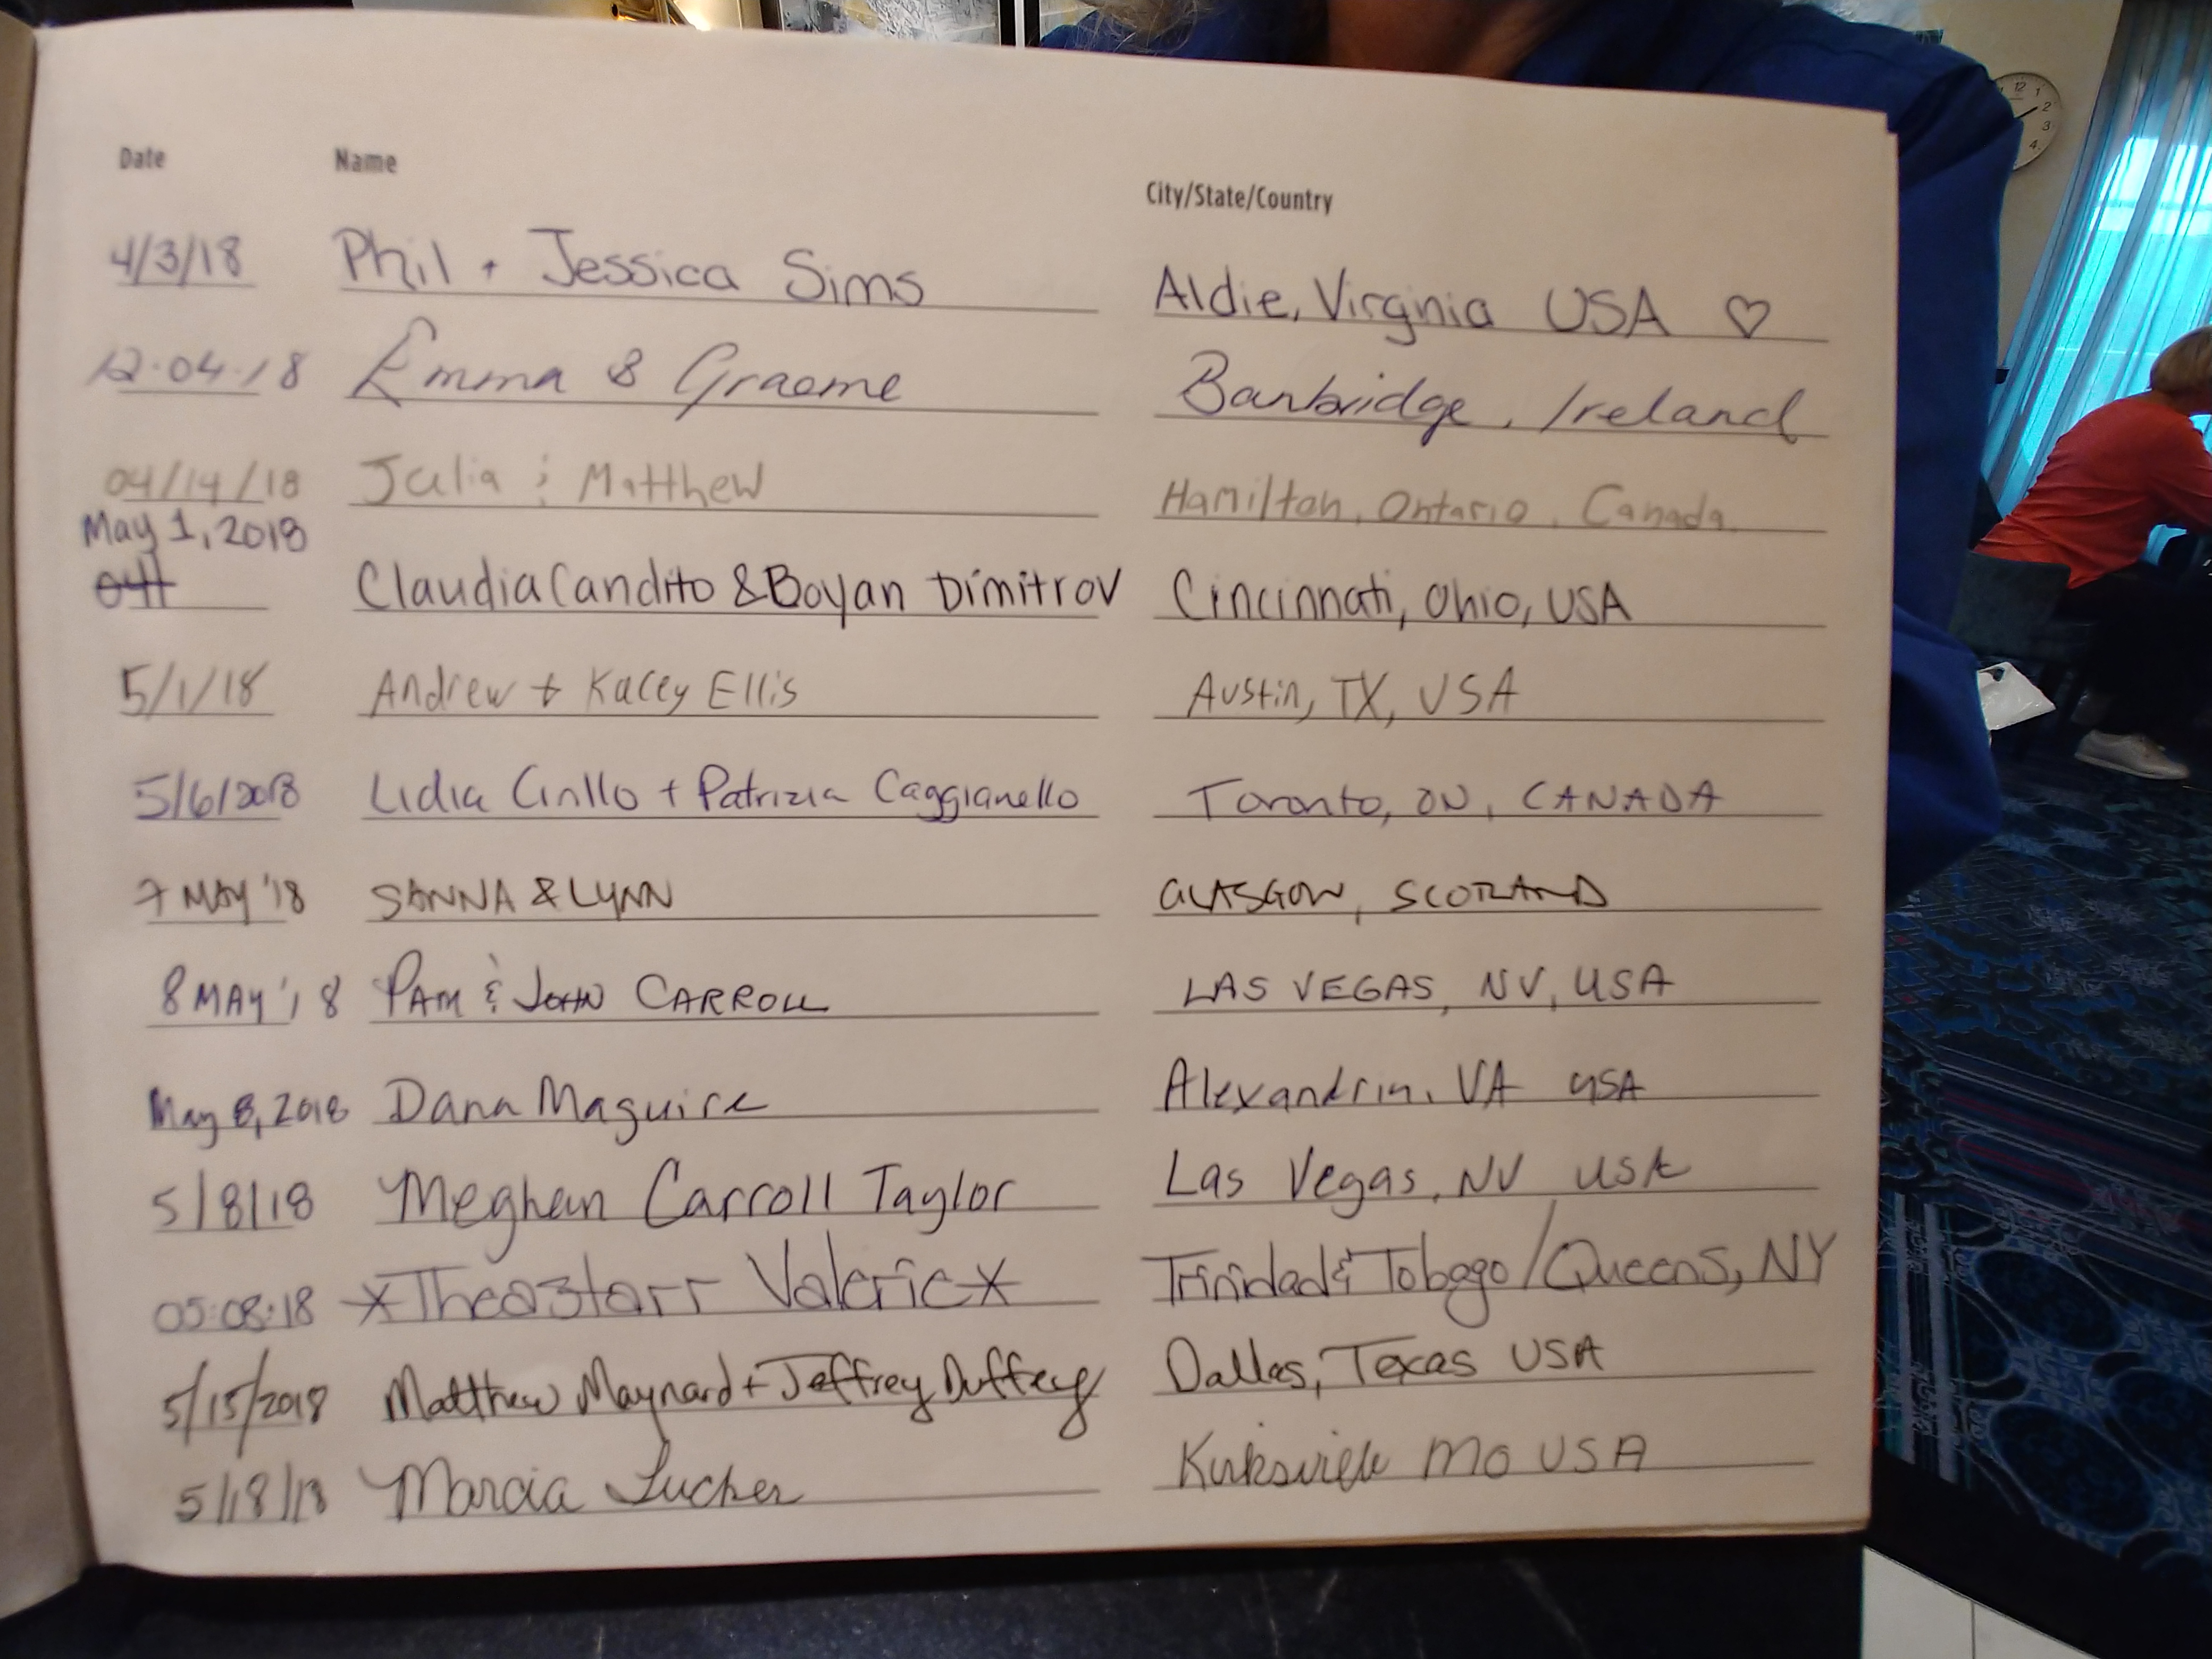 Date Name City/State/Country
4/3/18 Phil + Jessica Sims Aldie, Virginia USA ♡
12.04.18 Emma & Graeme Banbridge, Ireland
04/14/18 Julia & Matthew Hamilton, Ontario, Canada.
May 1, 2018
Claudia Candito & Boyan Dimitrov Cincinnati, Ohio, USA
5/1/18 Andrew + Kacey Ellis Austin, TX, USA
5/6/2018 Lidia Cirillo + Patrizia Caggianello Toronto, ON, CANADA
7 MAY '18 SANNA & LYNN GLASGOW, SCOTLAND
8 MAY '18 PAM & JOHN CARROLL LAS VEGAS, NV, USA
May 8, 2018 Dana Maguire Alexandria, VA USA
5/8/18 Meghan Carroll Taylor Las Vegas, NV USA
05:08:18 *Theastarr Valerie* Trinidad & Tobago/Queens, NY
5/15/2018 Matthew Maynard + Jeffrey Duffey Dallas, Texas USA
5/18/18 Marcia Tucker Kirksville MO USA
12 1 2 3 4